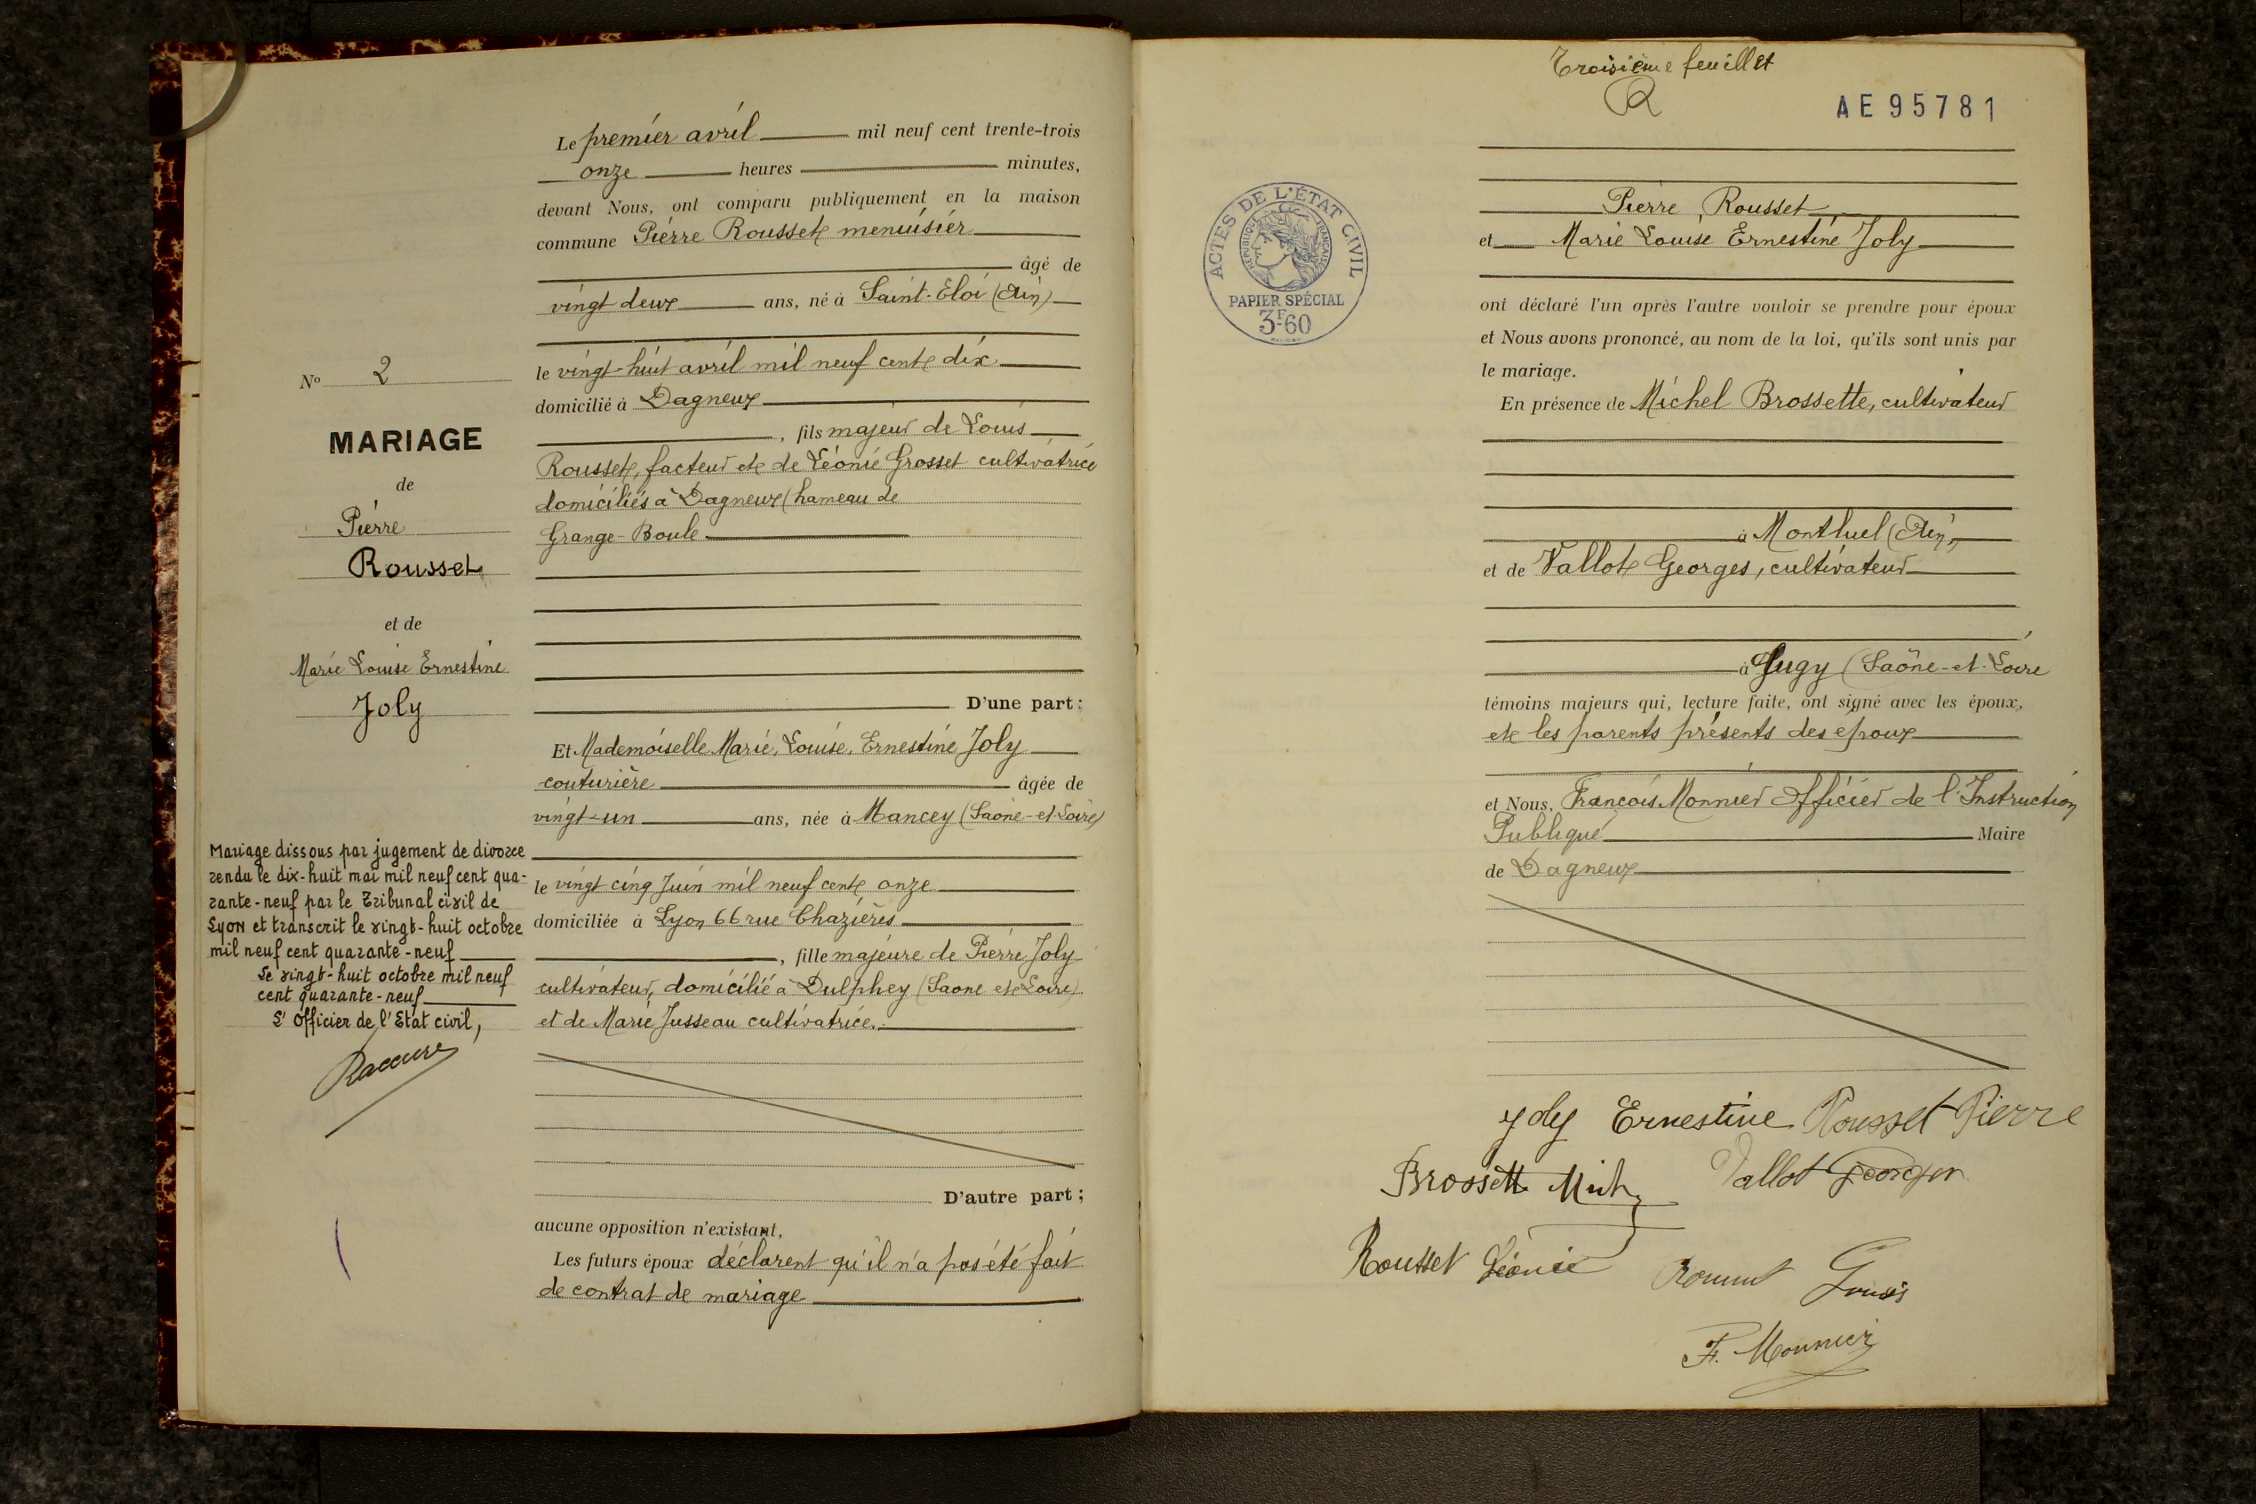 Le premier avril mil neuf cent trente-trois
onze heures minutes,
devant Nous, ont comparu publiquement en la maison
commune Pierre Rousset menuisier
âgé de
vingt deux ans, né à Saint-Eloi (Ain)
le vingt-huit avril mil neuf cent dix
domicilié à Dagneux
, fils majeur de Louis
Rousset, facteur et de Léonie Grosset cultivatrice
domiciliés à Dagneux (hameau de
Grange-Boule
D'une part;
Et Mademoiselle Marie, Louise, Ernestine Joly
couturière âgée de
vingt-un ans, née à Mancey (Saône-et-Loire)
le vingt cinq Juin mil neuf cent onze
domiciliée à Lyon 66 rue Chazières
, fille majeure de Pierre Joly
cultivateur, domicilié à Dulphey (Saone et Loire)
et de Marie Jusseau cultivatrice.
D'autre part;
aucune opposition n'existant,
Les futurs époux déclarent qu'il n'a pas été fait
de contrat de mariage
No 2
MARIAGE
de
Pierre
Rousset
et de
Marie Louise Ernestine
Joly
Mariage dissous par jugement de divorce
rendu le dix-huit mai mil neuf cent qua-
rante-neuf par le Tribunal civil de
Lyon et transcrit le vingt-huit octobre
mil neuf cent quarante-neuf
Le vingt-huit octobre mil neuf
cent quarante-neuf
L'Officier de l'Etat civil,
Troisième feuillet
AE 95781
ACTES DE L'ÉTAT CIVIL
RÉPUBLIQUE FRANÇAISE
PAPIER SPÉCIAL
3F60
Pierre Rousset
et Marie Louise Ernestine Joly
ont déclaré l'un après l'autre vouloir se prendre pour époux
et Nous avons prononcé, au nom de la loi, qu'ils sont unis par
le mariage.
En présence de Michel Brossette, cultivateur
à Montluel (Ain)
et de Vallot Georges, cultivateur
à Jugy (Saône-et-Loire
témoins majeurs qui, lecture faite, ont signé avec les époux,
et les parents présents des époux
et Nous, François Monnier Officier de l'Instruction
Publique Maire
de Dagneux
Joly Ernestine Rousset Pierre
Brossette Mich Vallot Georges
Rousset Léonie Rousset Louis
F. Monnier